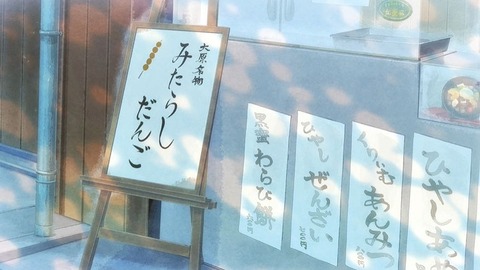 大原名物
みたらし
だんご
ひやしあ
くりぃむ
あんみつ
ひやし
ぜんざい
黒蜜
わらび餅